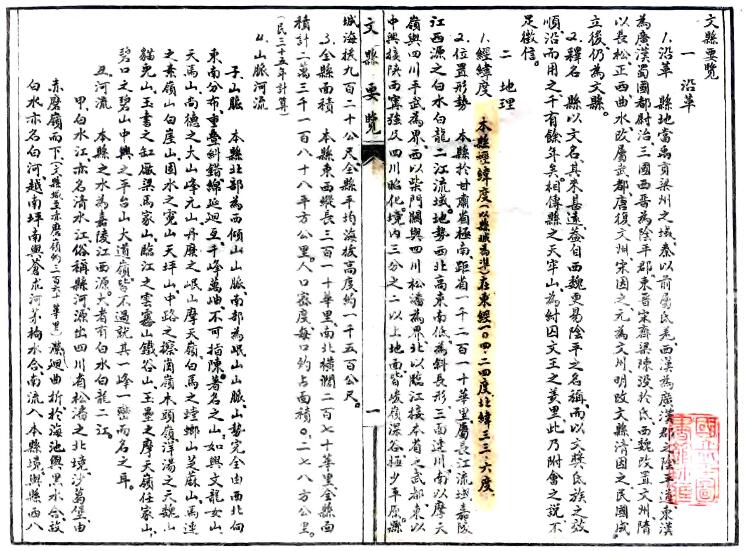 文縣要覽
一 沿革
1. 沿革 縣地當禹貢梁州之域,秦以前屬氐羌,西漢為廣漢郡之陰平道,東漢
為廣漢蜀國都尉治,三國西晉為陰平郡,東晉宋齊梁陳沒於氐,西魏改置文州,隋
以長松正西曲水改屬武都,唐復文州,宋因之,元為文州,明改文縣,清因之,民國成
立後,仍為文縣。
2. 釋名 縣以文名,其來甚遠,蓋自西魏更易陰平之名稱,而以文獎氐族之效
順,沿而用之,千有餘年矣,相傳縣之天牢山,為紂囚文王之羑里,此乃附會之說,不
足徵信。
二 地理
1. 經緯度 本縣經緯度(以縣城為準)在東經一〇四·二四度,北緯三三·六度,
2. 位置形勢 本縣於甘肅省極南,距省一千二百一十華里,屬長江流域,嘉陵
江西源之白水白龍二江流域,地勢西北高東南低,為斜長形,三面達川,南以摩天
嶺與四川平武為界,西以柴門關與四川松潘為界,北以臨江接本省之武都,東以
中興接陝西寧強及四川昭化,境內三分之二以上地面,皆峻嶺深谷,極少平原,縣
文縣要覽
一
城海拔九百二十公尺,全縣平均海拔高度約一千五百公尺。
3. 全縣面積 本縣東西縱長三百一十華里,南北橫濶二百七十華里,全縣面
積計一萬三千一百八十八平方公里。人口密度,每口約占面積〇·二七八方公里。
(民三十五年計算)
4. 山脈河流
子、山脈 本縣北部為西傾山山脈,南部為岷山山脈,山勢完全由西北向
東南分布,重叠糾錯,綿延迴互,千峰萬岫,不可指陳,著名之山,如興文龍女山,
天馬山,尚德之大山,峰元山,丹堡之岷山,摩天嶺,白馬之螳螂山,芝蔴山,馬連
之素嶺山,白崖山,固水之寬山,天坪山,中路之擦崗嶺,木頭嶺,洋湯之天魏山,
貓兒山,玉書之缸廠梁,馬家山,臨江之雲霧山,鐵谷山,玉壘之摩天嶺,任家山,
碧口之碧山,中興之平台山,大道嶺,皆不過就其一峰一巒而名之耳。
丑、河流 本縣之水為嘉陵江西源,大者有白水白龍二江。
甲 白水江,亦名清水江,俗稱縣河,源出四川省松潘之北境,沙萬堡由
赤磨嶺而下(文縣城至赤磨嶺約三百六十華里)瀠迴曲折,於海池與黑水合,故
白水亦名白河,越南坪,南與蒼求河茅枸水合,南流入本縣境,與縣西八